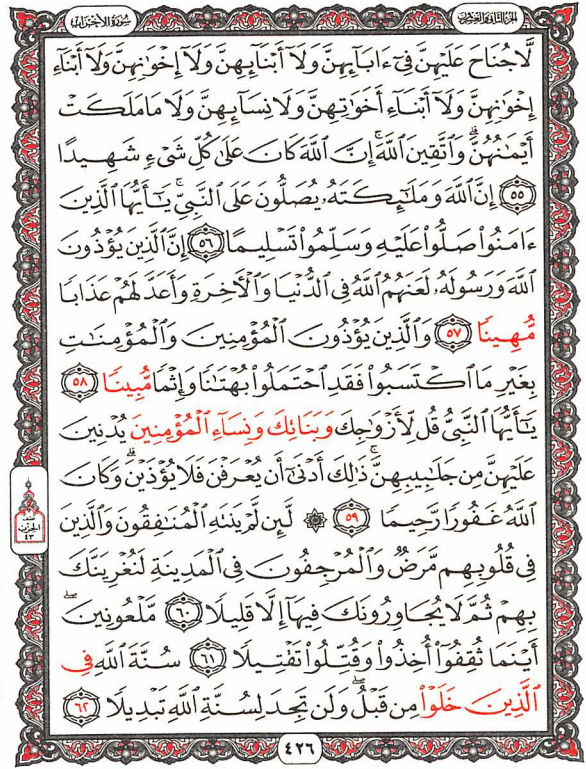 الجزء الثاني والعشرون
سورة الأحزاب
لَّا جُنَاحَ عَلَيْهِنَّ فِىٓ ءَابَآئِهِنَّ وَلَآ أَبْنَآئِهِنَّ وَلَآ إِخْوَٰنِهِنَّ وَلَآ أَبْنَآءِ
إِخْوَٰنِهِنَّ وَلَآ أَبْنَآءِ أَخَوَٰتِهِنَّ وَلَا نِسَآئِهِنَّ وَلَا مَا مَلَكَتْ
أَيْمَٰنُهُنَّ ۗ وَٱتَّقِينَ ٱللَّهَ ۚ إِنَّ ٱللَّهَ كَانَ عَلَىٰ كُلِّ شَىْءٍ شَهِيدًا
٥٥ إِنَّ ٱللَّهَ وَمَلَٰٓئِكَتَهُۥ يُصَلُّونَ عَلَى ٱلنَّبِىِّ ۚ يَٰٓأَيُّهَا ٱلَّذِينَ
ءَامَنُوا۟ صَلُّوا۟ عَلَيْهِ وَسَلِّمُوا۟ تَسْلِيمًا ٥٦ إِنَّ ٱلَّذِينَ يُؤْذُونَ
ٱللَّهَ وَرَسُولَهُۥ لَعَنَهُمُ ٱللَّهُ فِى ٱلدُّنْيَا وَٱلْأَخِرَةِ وَأَعَدَّ لَهُمْ عَذَابًا
مُّهِينًا ٥٧ وَٱلَّذِينَ يُؤْذُونَ ٱلْمُؤْمِنِينَ وَٱلْمُؤْمِنَٰتِ
بِغَيْرِ مَا ٱكْتَسَبُوا۟ فَقَدِ ٱحْتَمَلُوا۟ بُهْتَٰنًا وَإِثْمًا مُّبِينًا ٥٨
يَٰٓأَيُّهَا ٱلنَّبِىُّ قُل لِّأَزْوَٰجِكَ وَبَنَاتِكَ وَنِسَآءِ ٱلْمُؤْمِنِينَ يُدْنِينَ
عَلَيْهِنَّ مِن جَلَٰبِيبِهِنَّ ۚ ذَٰلِكَ أَدْنَىٰٓ أَن يُعْرَفْنَ فَلَا يُؤْذَيْنَ ۗ وَكَانَ
ٱللَّهُ غَفُورًا رَّحِيمًا ٥٩ ۞ لَّئِن لَّمْ يَنتَهِ ٱلْمُنَٰفِقُونَ وَٱلَّذِينَ
فِى قُلُوبِهِم مَّرَضٌ وَٱلْمُرْجِفُونَ فِى ٱلْمَدِينَةِ لَنُغْرِيَنَّكَ
بِهِمْ ثُمَّ لَا يُجَاوِرُونَكَ فِيهَآ إِلَّا قَلِيلًا ٦٠ مَّلْعُونِينَ ۖ
أَيْنَمَا ثُقِفُوٓا۟ أُخِذُوا۟ وَقُتِّلُوا۟ تَقْتِيلًا ٦١ سُنَّةَ ٱللَّهِ فِى
ٱلَّذِينَ خَلَوْا۟ مِن قَبْلُ ۖ وَلَن تَجِدَ لِسُنَّةِ ٱللَّهِ تَبْدِيلًا ٦٢
الحزب
٤٣
٤٢٦